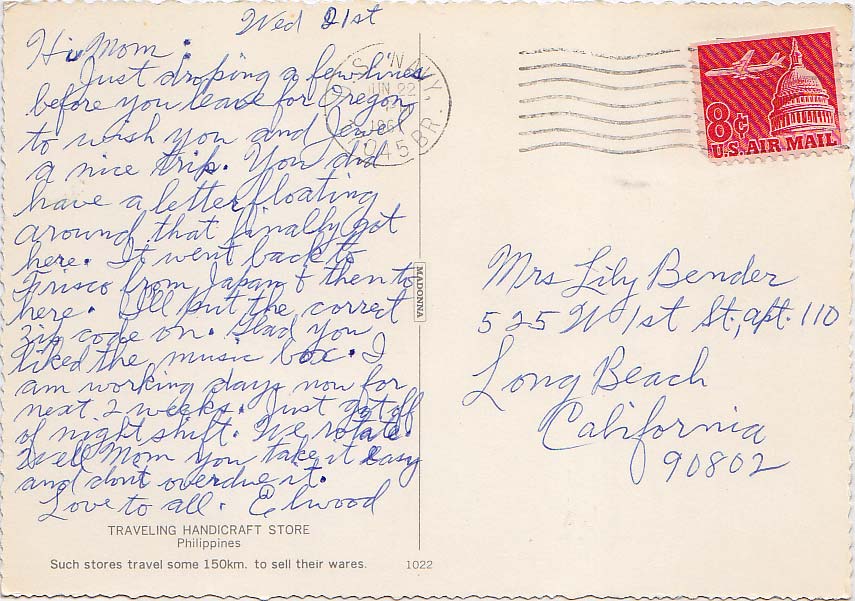 Wed 21st
Hi Mom:
Just droping a few lines
before you leave for Oregon
to wish you and Jewel
a nice trip. You did
have a letter floating
around that finally got
here. It went back to
Frisco from Japan & then to
here. I'll put the correct
zip code on. Glad you
liked the music box. I
am working days now for
next 2 weeks. Just got off
of night shift. We rotate.
Well Mom you take it easy
and dont overdue it.
Love to all. Elwood
TRAVELING HANDICRAFT STORE
Philippines
Such stores travel some 150km. to sell their wares.
1022
MADONNA
NAVY,
JUN 22
BR.
8¢
U.S. AIR MAIL
Mrs Lily Bender
525 W 1st St., apt. 110
Long Beach
California
90802